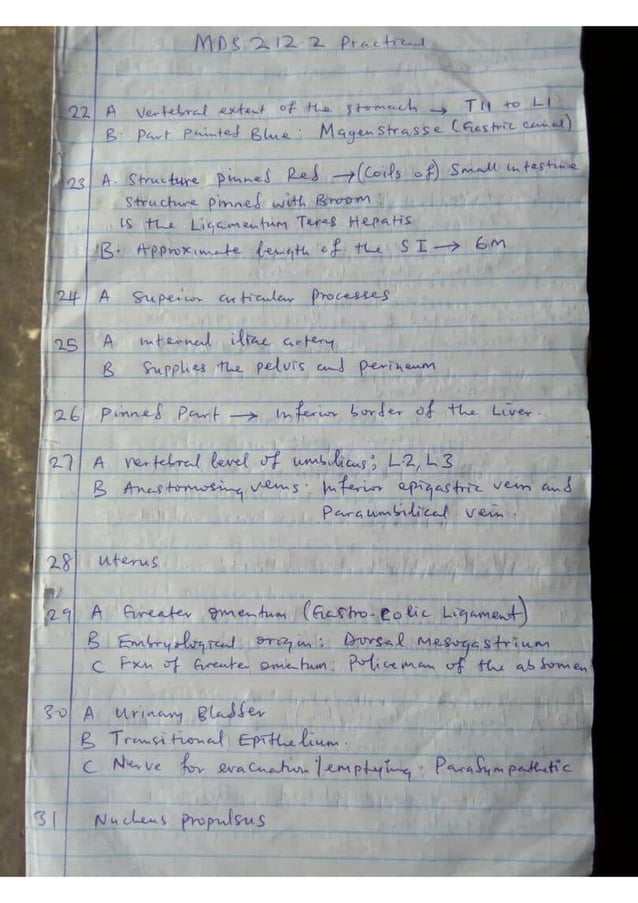 MDS 212 2 Practical
22 A Vertebral extent of the stomach → T11 to L1
B. Part Painted Blue: Magenstrasse (Gastric canal)
23 A. Structure pinned Red → (Coils of) Small intestine
Structure pinned with Broom:
is the Ligamentum Teres Hepatis
B. Approximate length of the SI → 6M
24 A Superior articular Processes
25 A internal iliac artery
B Supplies the pelvis and perineum
26 Pinned Part → Inferior border of the Liver.
27 A Vertebral level of umbilicus; L2, L3
B Anastomosing veins: Inferior epigastric vein and
Paraumbilical vein.
28 uterus
29 A Greater omentum (Gastro-colic Ligament)
B Embryological origin: Dorsal Mesogastrium
C Fxn of Greater omentum: Policeman of the abdomen
30 A Urinary Bladder
B Transitional Epithelium.
C Nerve for evacuation/emptying: Parasympathetic
31 Nucleus propulsus